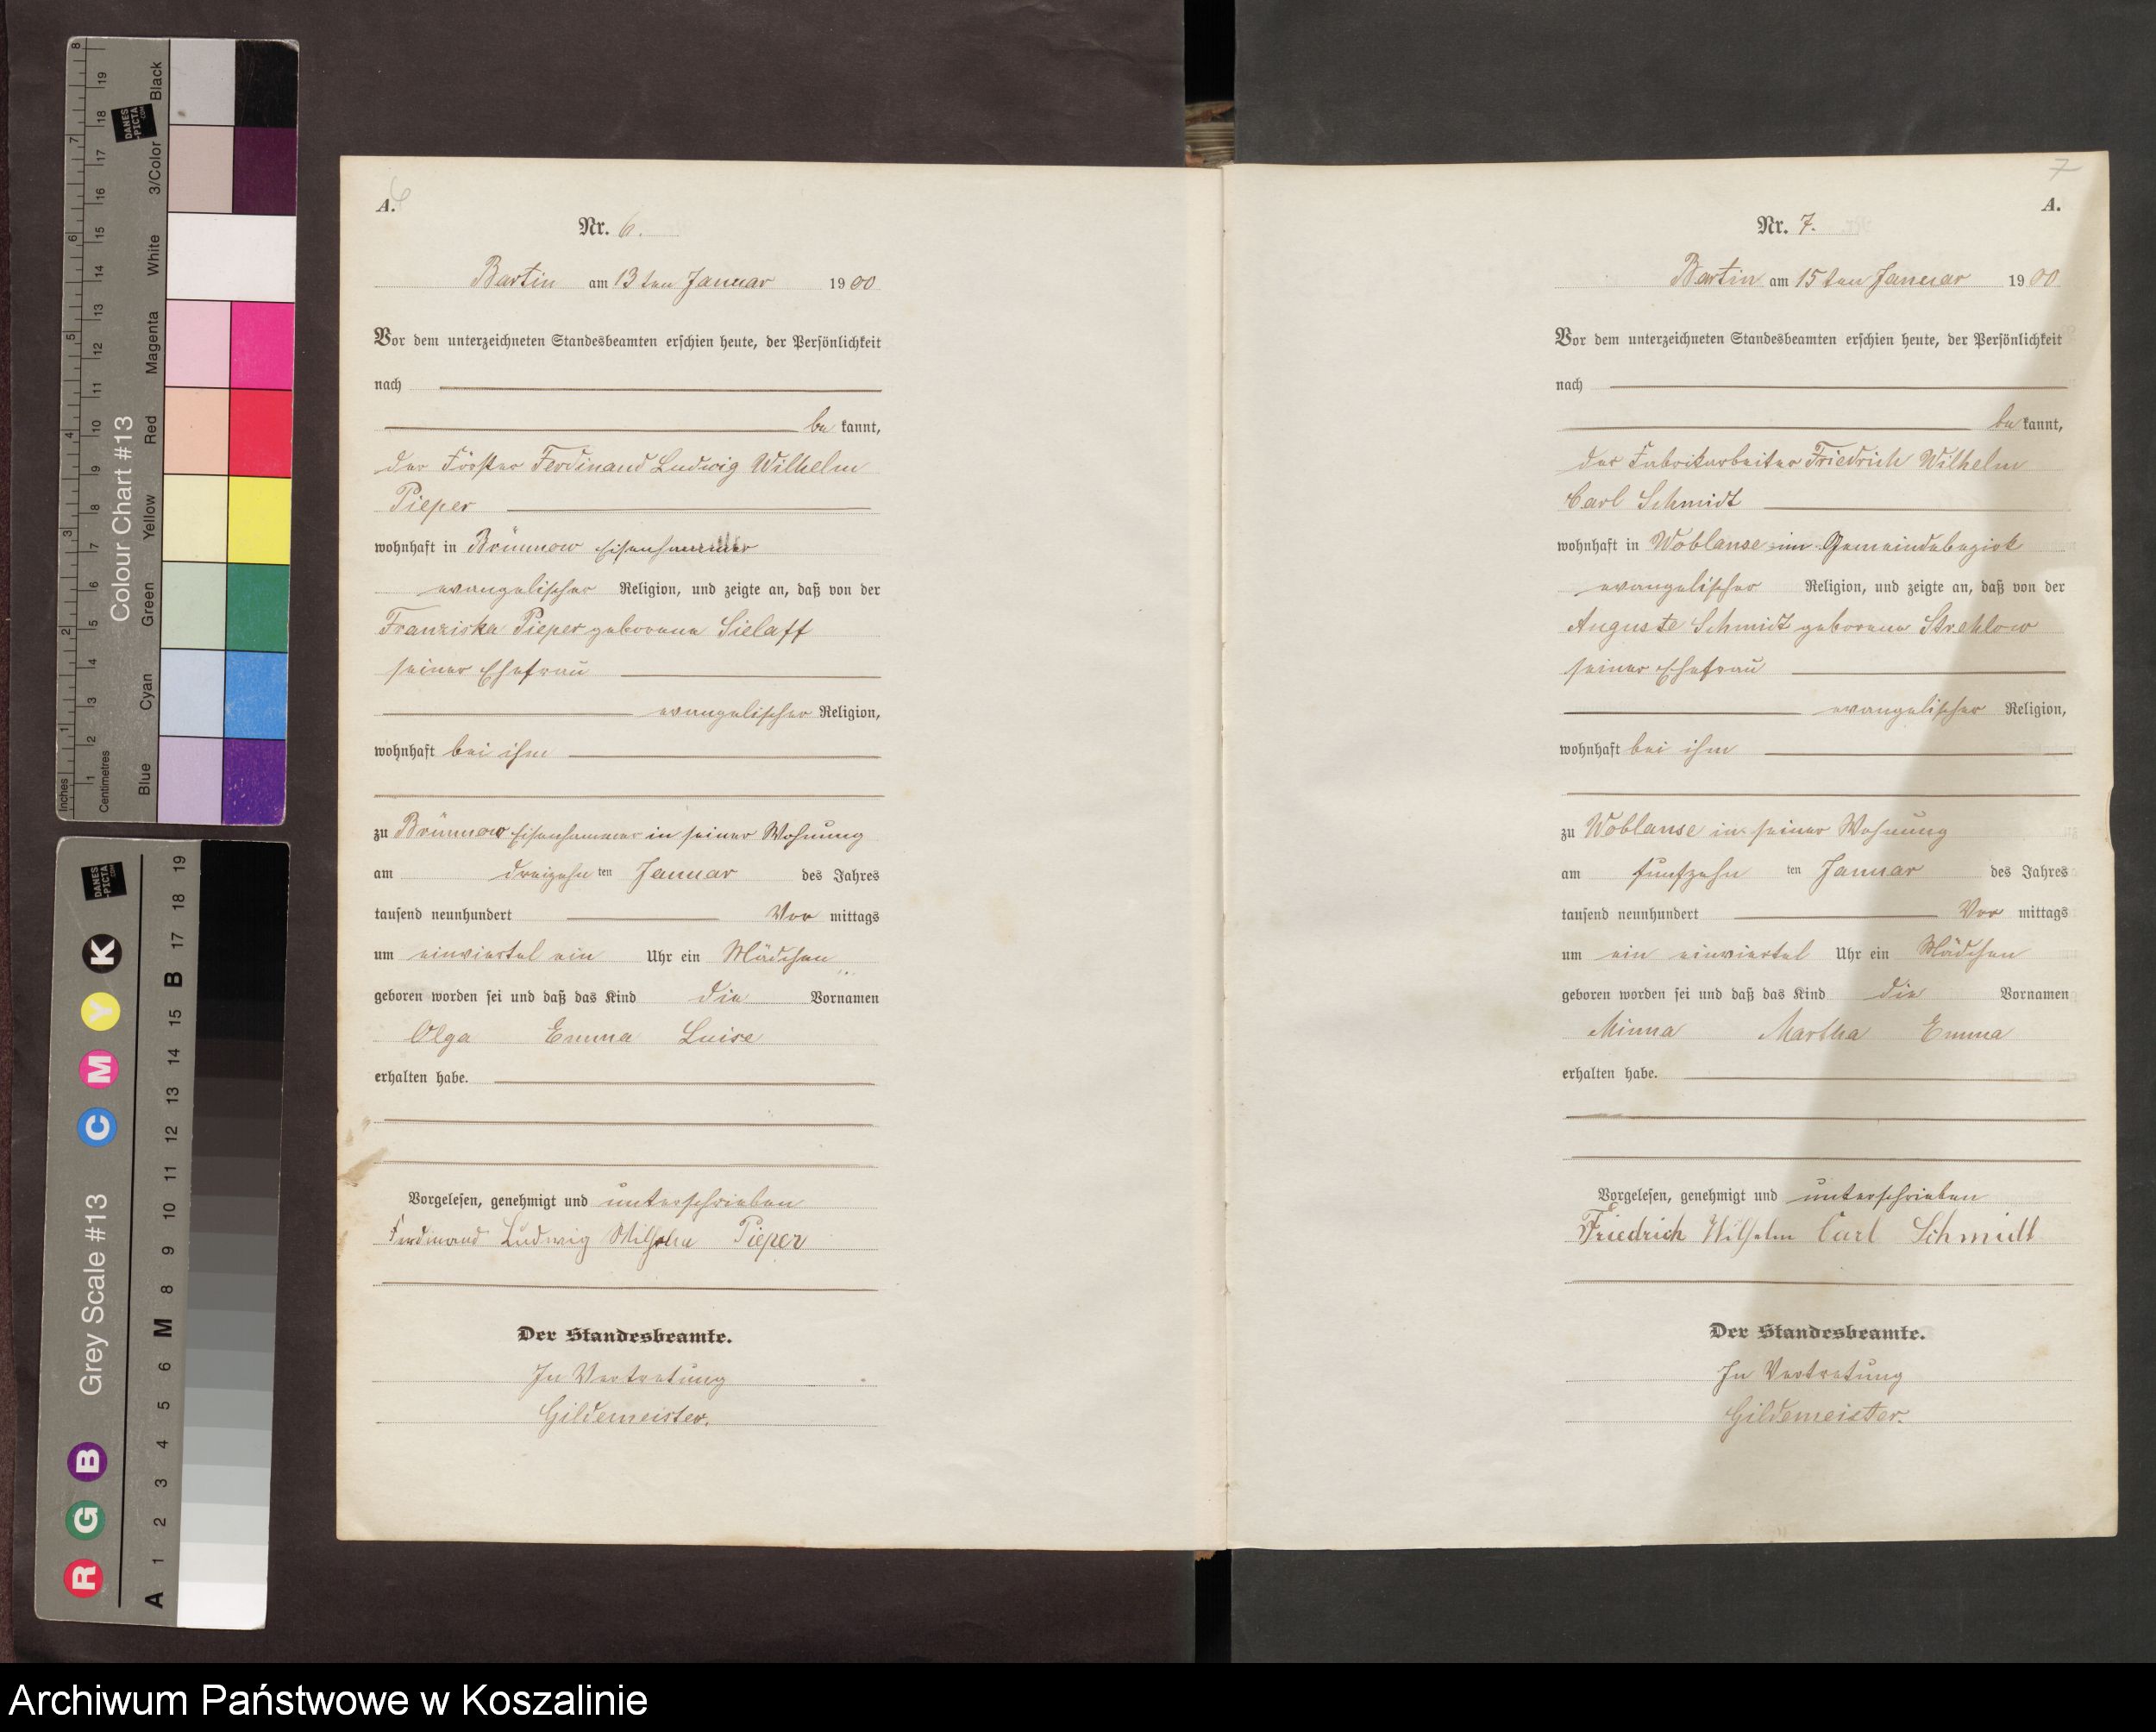 6
A.
Nr. 6.
Bartin am 13ten Januar 1900
Vor dem unterzeichneten Standesbeamten erschien heute, der Persönlichkeit
nach
bekannt,
der Förster Ferdinand Ludwig Wilhelm
Pieper
wohnhaft in Brünnow Eisenhammer
evangelischer Religion, und zeigte an, daß von der
Franziska Pieper geborene Sielaff
seiner Ehefrau
evangelischer Religion,
wohnhaft bei ihm
zu Brünnow Eisenhammer in seiner Wohnung
am dreizehnten Januar des Jahres
tausend neunhundert Vormittags
um einviertel ein Uhr ein Mädchen
geboren worden sei und daß das Kind die Vornamen
Olga Emma Luise
erhalten habe.
Vorgelesen, genehmigt und unterschrieben
Ferdinand Ludwig Wilhelm Pieper
Der Standesbeamte.
In Vertretung
Gildemeister.
7
A.
Nr. 7.
Bartin am 15ten Januar 1900
Vor dem unterzeichneten Standesbeamten erschien heute, der Persönlichkeit
nach
bekannt,
der Fabrikarbeiter Friedrich Wilhelm
Carl Schmidt
wohnhaft in Woblanse im Gemeindebezirk
evangelischer Religion, und zeigte an, daß von der
Auguste Schmidt geborene Strehlow
seiner Ehefrau
evangelischer Religion,
wohnhaft bei ihm
zu Woblanse in seiner Wohnung
am fünfzehn ten Januar des Jahres
tausend neunhundert Vormittags
um ein einviertel Uhr ein Mädchen
geboren worden sei und daß das Kind die Vornamen
Minna Martha Emma
erhalten habe.
Vorgelesen, genehmigt und unterschrieben
Friedrich Wilhelm Carl Schmidt
Der Standesbeamte.
In Vertretung
Gildemeister.
Colour Chart #13
Blue Cyan Green Yellow Red Magenta White 3/Color Black
Inches 1 2 3 4 5 6 7 8
Centimetres 1 2 3 4 5 6 7 8 9 10 11 12 13 14 15 16 17 18 19
DANES-PICTA.COM
Grey Scale #13
R G B C M Y K
A 1 2 3 4 5 6 M 8 9 10 11 12 13 14 15 B 17 18 19
DANES-PICTA.COM
Archiwum Państwowe w Koszalinie